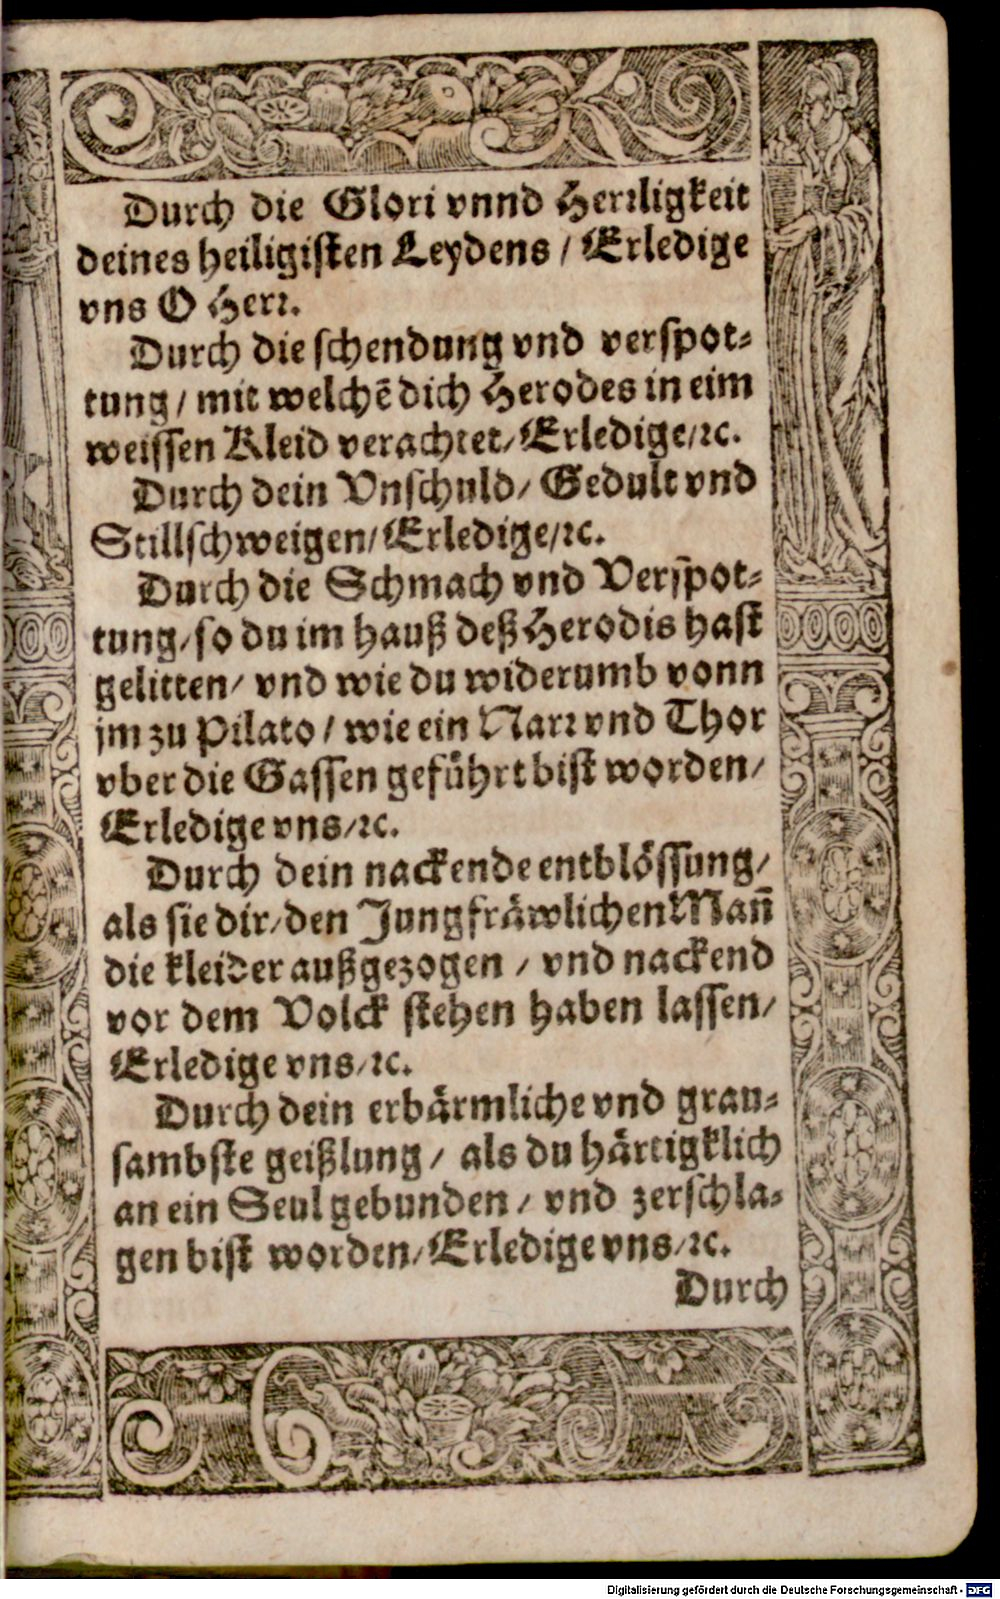 Durch die Glori vnnd Herꝛligkeit
deines heiligisten Leydens / Erledige
vns O Herꝛ.
Durch die schendung vnd verspot⸗
tung / mit welchẽ dich Herodes in eim
weissen Kleid verachtet / Erledige / ꝛc.
Durch dein Vnschuld / Gedult vnd
Stillschweigen / Erledige / ꝛc.
Durch die Schmach vnd Verspot⸗
tung / so du im hauß deß Herodis hast
gelitten / vnd wie du widerumb vonn
jm zu Pilato / wie ein Narꝛ vnd Thor
vber die Gassen geführt bist worden /
Erledige vns / ꝛc.
Durch dein nackende entblössung /
als sie dir / den Jungfräwlichen Man̄
die kleider außgezogen / vnd nackend
vor dem Volck stehen haben lassen /
Erledige vns / ꝛc.
Durch dein erbärmliche vnd grau⸗
sambste geißlung / als du härtigklich
an ein Seul gebunden / vnd zerschla⸗
gen bist worden / Erledige vns / ꝛc.
Durch
Digitalisierung gefördert durch die Deutsche Forschungsgemeinschaft - DFG